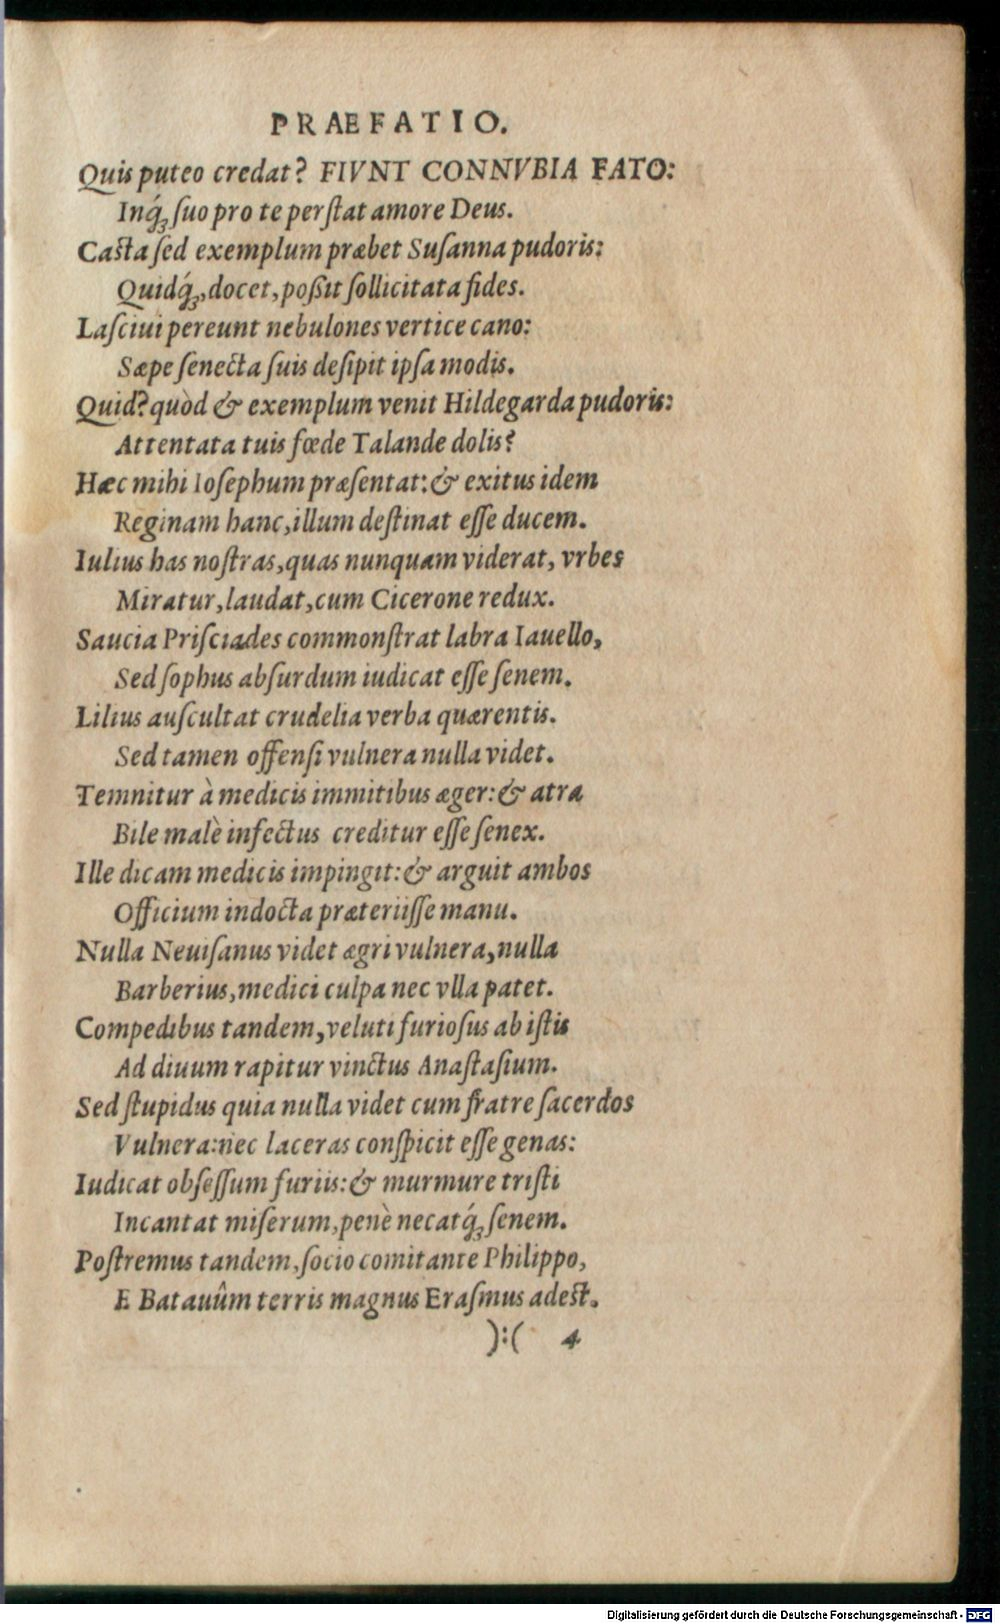 PRAEFATIO.
Quis puteo credat? FIVNT CONNVBIA FATO:
Inq́ꝫ suo pro te perſtat amore Deus.
Caſta ſed exemplum præbet Suſanna pudoris:
Quidq́ꝫ, docet, poßit ſollicitata fides.
Laſciui pereunt nebulones vertice cano:
Sæpe ſenecta ſuis deſipit ipſa modis.
Quid? quòd & exemplum venit Hildegarda pudoris:
Attentata tuis fœde Talande dolis?
Hæc mihi Ioſephum præſentat: & exitus idem
Reginam hanc, illum deſtinat eſſe ducem.
Iulius has noſtras, quas nunquam viderat, vrbes
Miratur, laudat, cum Cicerone redux.
Saucia Priſciades commonſtrat labra Iauello,
Sed ſophus abſurdum iudicat eſſe ſenem.
Lilius auſcultat crudelia verba quærentis.
Sed tamen offenſi vulnera nulla videt.
Temnitur à medicis immitibus æger: & atra
Bile malè infectus creditur eſſe ſenex.
Ille dicam medicis impingit: & arguit ambos
Officium indocta præteriiſſe manu.
Nulla Neuiſanus videt ægri vulnera, nulla
Barberius, medici culpa nec vlla patet.
Compedibus tandem, veluti furioſus ab iſtis
Ad diuum rapitur vinctus Anaſtaſium.
Sed ſtupidus quia nulla videt cum fratre ſacerdos
Vulnera: nec laceras conſpicit eſſe genas:
Iudicat obſeſſum furiis: & murmure triſti
Incantat miſerum, penè necatq́ꝫ ſenem.
Poſtremus tandem, ſocio comitante Philippo,
E Batauûm terris magnus Eraſmus adeſt.
):( 4
Digitalisierung gefördert durch die Deutsche Forschungsgemeinschaft - DFG